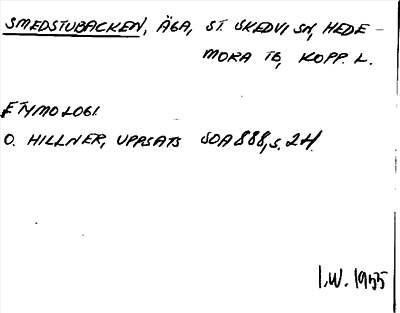 SMEDSTUBACKEN, ÄGA, ST. SKEDVI SN, HEDE-
MORA TG, KOPP. L.
ETYMOLOGI.
O. HILLNER, UPPSATS SOA 888, s. 24.
I.W. 1955